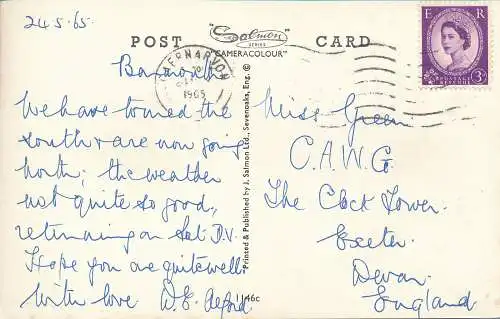 24.5.65.
POST "Salmon SERIES CARD
"CAMERACOLOUR"
E R
POSTAGE REVENUE
3D
CAERNARVON
1965
Barmouth
We have toured the
south & are now going
north; the weather
not quite so good,
returning on Sat D.V.
Hope you are quite well
With love W.E. Alford
Printed & Published by J. Salmon Ltd., Sevenoaks, Eng. ©
1146c
Miss Green
C.A.W.G.
The Clock Tower.
Exeter
Devon.
England